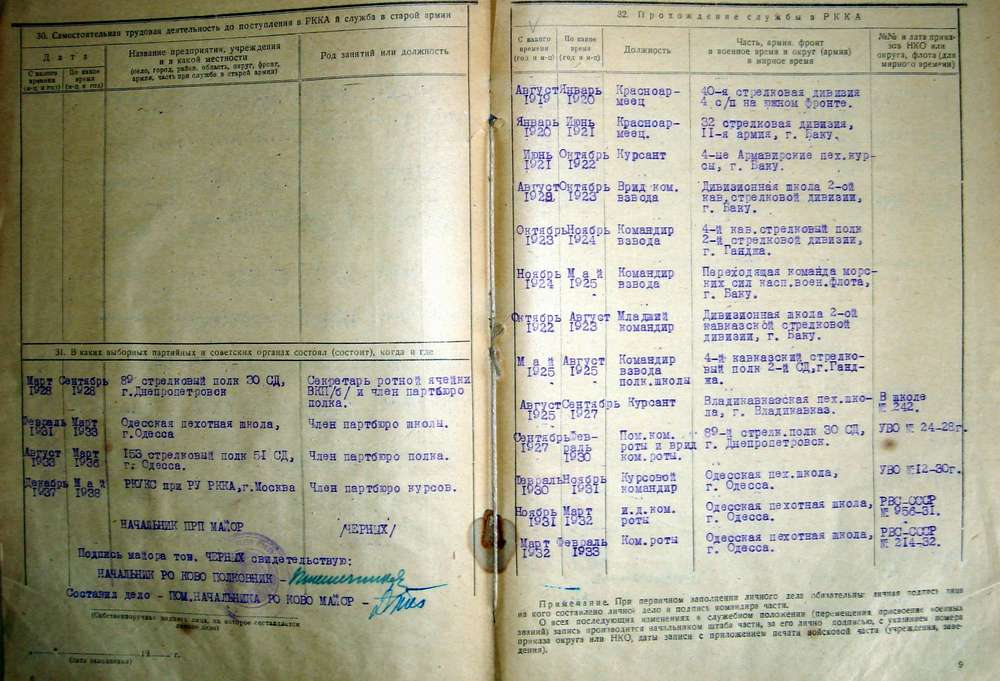 30. Самостоятельная трудовая деятельность до поступления в РККА и служба в старой армии
Дата
Название предприятия, учреждения
и в какой местности
(село, город, район, область, округ, фронт,
армия, часть при службе в старой армии)
Род занятий или должность
С какого
времени
(м-ц и год)
По какое
время
(м-ц и год)
31. В каких выборных партийных и советских органах состоял (состоит), когда и где
Март Сентябрь 89 стрелковый полк 30 СД, Секретарь ротной ячейки
1928 1928 г.Днепропетровск ВКП/б/ и член партбюро
полка.
Февраль Март Одесская пехотная школа, Член партбюро школы.
1931 1933 г.Одесса
Август Март 153 стрелковый полк 51 СД, Член партбюро полка.
1933 1936 г. Одесса.
Декабрь Май РКУКС при РУ РККА,г.Москва Член партбюро курсов.
1937 1938
НАЧАЛЬНИК ПРП МАЙОР /ЧЕРНЫХ/
Подпись майора тов. ЧЕРНЫХ свидетельствую:
НАЧАЛЬНИК РО КОВО ПОЛКОВНИК -
Составил дело - ПОМ.НАЧАЛЬНИКА РО КОВО МАЙОР -
(Собственноручная подпись лица, на которое составляется
личное дело)
" " 19 г.
(дата заполнения)
32. Прохождение службы в РККА
С какого
времени
(год и м-ц)
По какое
время
(год и м-ц)
Должность
Часть, армия, фронт
в военное время и округ (армия)
в мирное время
№№ и дата прика-
зов НКО или
округа, флота (для
мирного времени)
Август Январь Красноар- 40-я стрелковая дивизия
1919 1920 меец 4 с/п на южном фронте.
Январь Июнь Красноар- 32 стрелковая дивизия,
1920 1921 меец. II-я армия, г. Баку.
Июнь Октябрь Курсант 4-ые Армавирские пех.кур-
1921 1922 сы, г. Баку.
Август Октябрь Врид ком. Дивизионная школа 2-ой
1923 1923 взвода кав.стрелковой дивизии,
г. Баку.
Октябрь Ноябрь Командир 4-й кав.стрелковый полк
1923 1924 взвода 2-й стрелковой дивизии,
г. Ганджа.
Ноябрь Май Командир Переходящая команда морс-
1924 1925 взвода ких сил касп.воен.флота,
г. Баку.
Октябрь Август Младший Дивизионная школа 2-ой
1922 1923 командир кавказской стрелковой
дивизии, г. Баку.
Май Август Командир 4-й кавказский стрелко-
1925 1925 взвода вый полк 2-й СД,г.Ганд-
полк.школы жа.
Август Сентябрь Курсант Владикавказская пех.шко- В школе
1925 1927 ла, г. Владикавказ. № 242.
Сентябрь Фев- Пом.ком. 89-й стрелк.полк 30 СД, УВО № 24-28г.
1927 раль роты и врид г. Днепропетровск.
1930 ком.роты.
Февраль Ноябрь Курсовой Одесская пех.школа, УВО №12-30г.
1930 1931 командир г. Одесса.
Ноябрь Март и.д.ком. Одесская пехотная школа, РВС-СССР
1931 1932 роты г. Одесса. № 956-31.
Март Февраль Ком.роты Одесская пехотная школа, РВС-СССР
1932 1933 г. Одесса. № 214-32.
Примечание. При первичном заполнении личного дела обязательны: личная подпись лица
на кого составлено личное дело и подпись командира части.
О всех последующих изменениях в служебном положении (перемещения, присвоение военных
званий) запись производится начальником штаба части, за его личной подписью, с указанием номера
приказа округа или НКО, даты записи с приложением печати войсковой части (учреждения, заве-
дения).
9